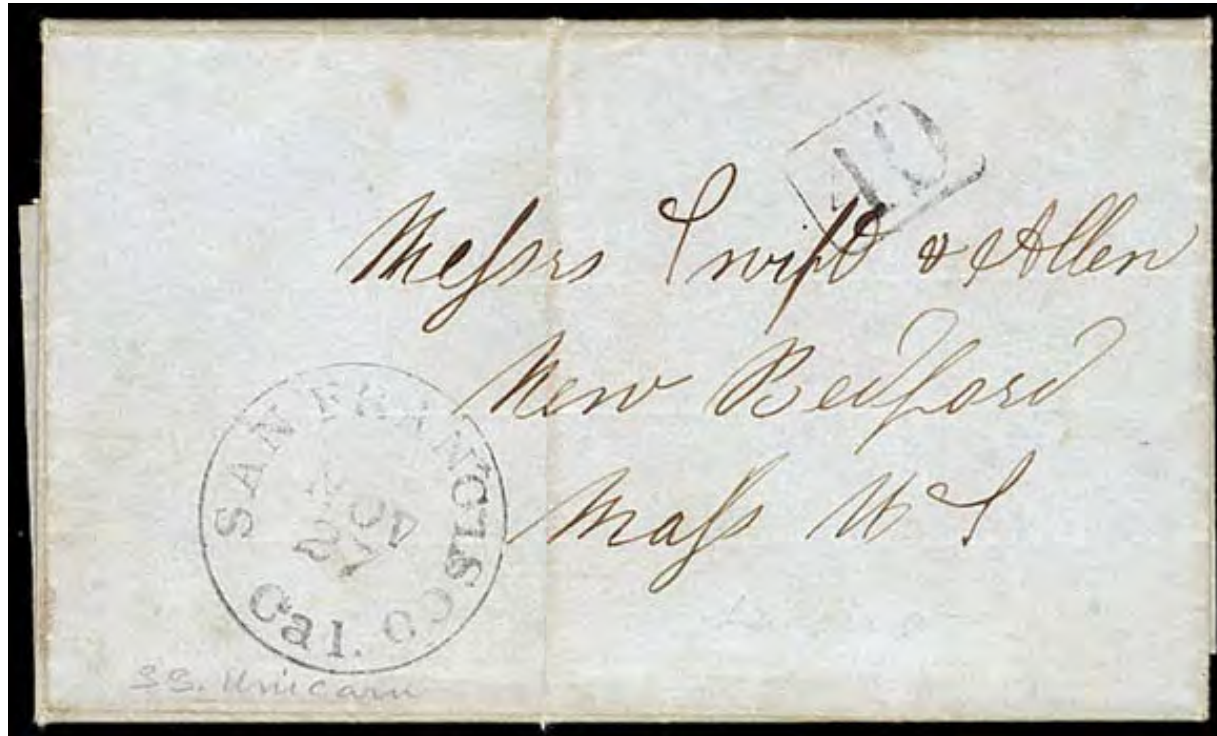 40
Messrs Swift & Allen
New Bedford
Mass U S
SAN FRANCISCO
Cal.
NOV
SS. Unicorn